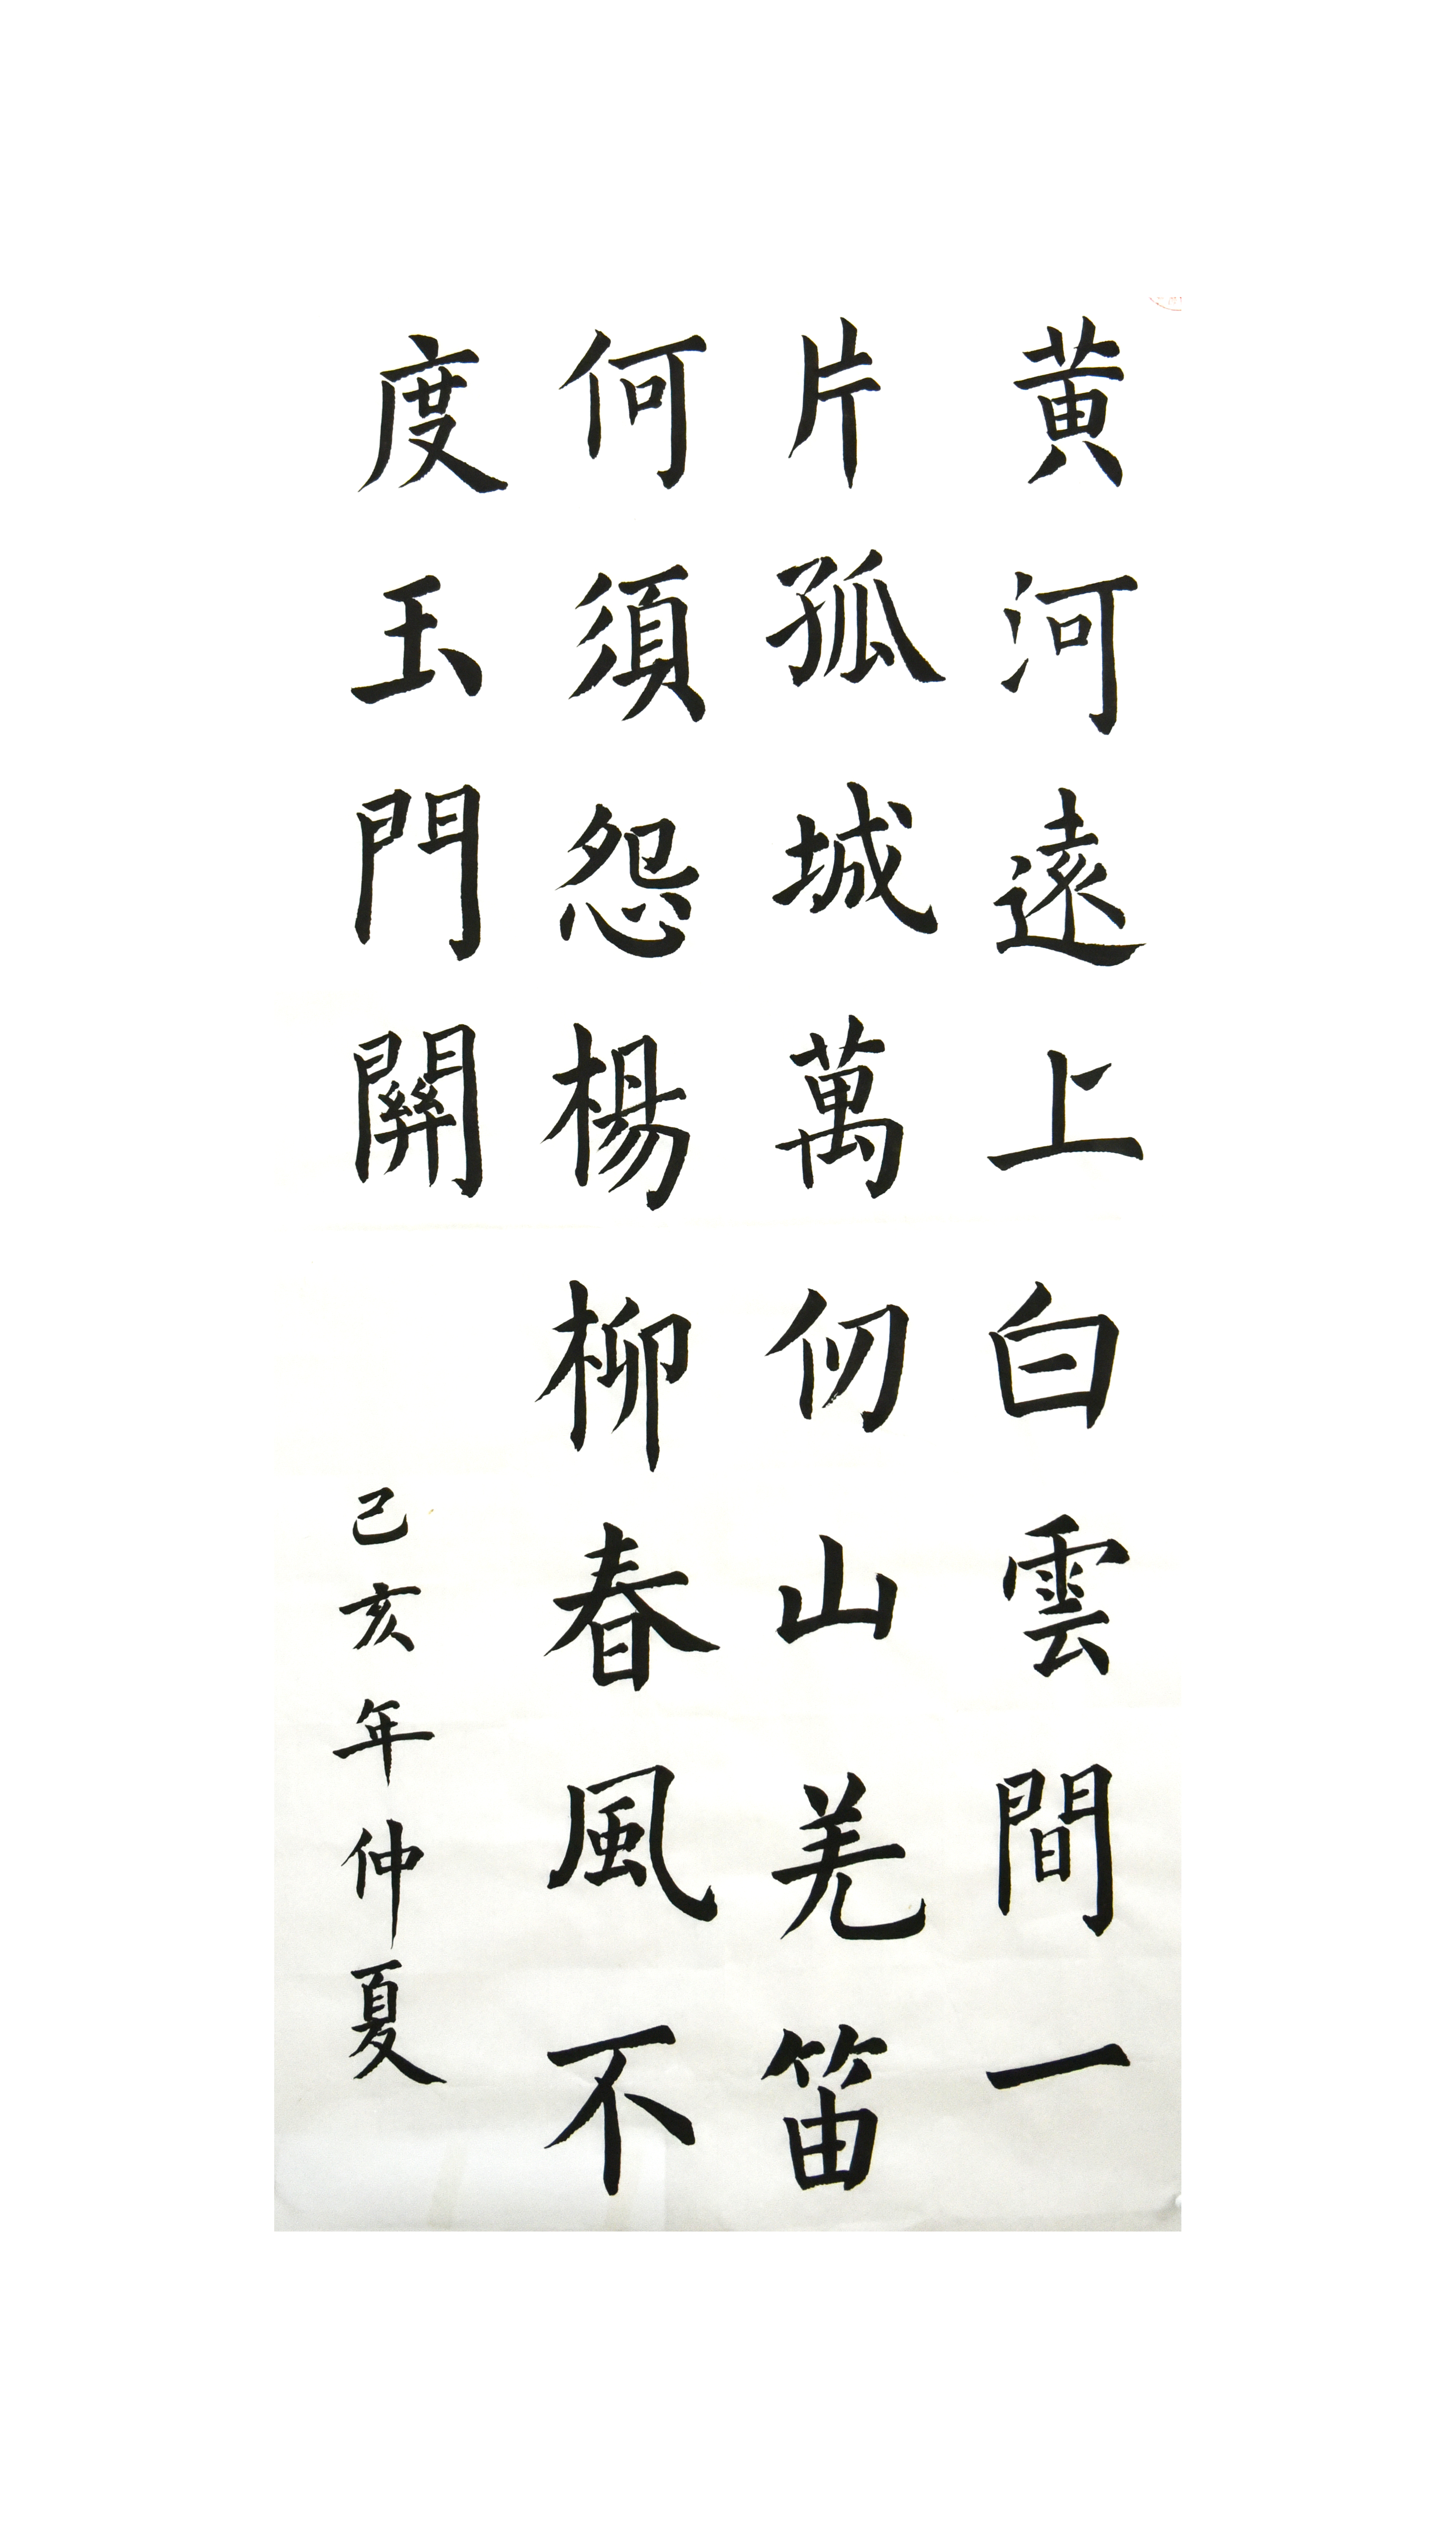 黄河遠上白雲間一
片孤城萬仞山羌笛
何須怨楊柳春風不
度玉門關
己亥年仲夏